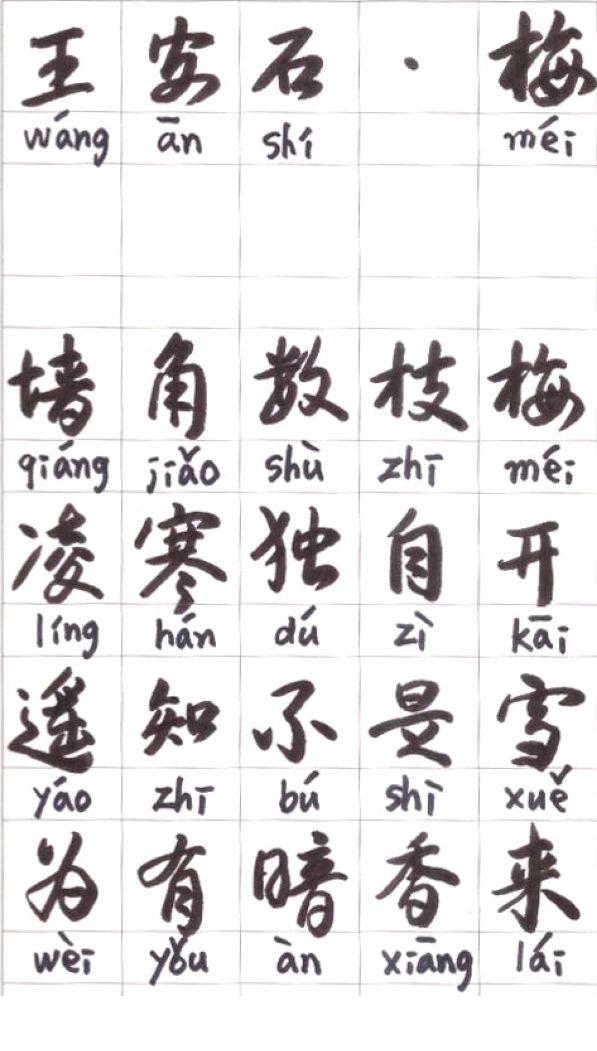 王安石·梅
wáng ān shí méi
墙角数枝梅
qiáng jiǎo shù zhī méi
凌寒独自开
líng hán dú zì kāi
遥知不是雪
yáo zhī bú shì xuě
为有暗香来
wèi yǒu àn xiāng lái